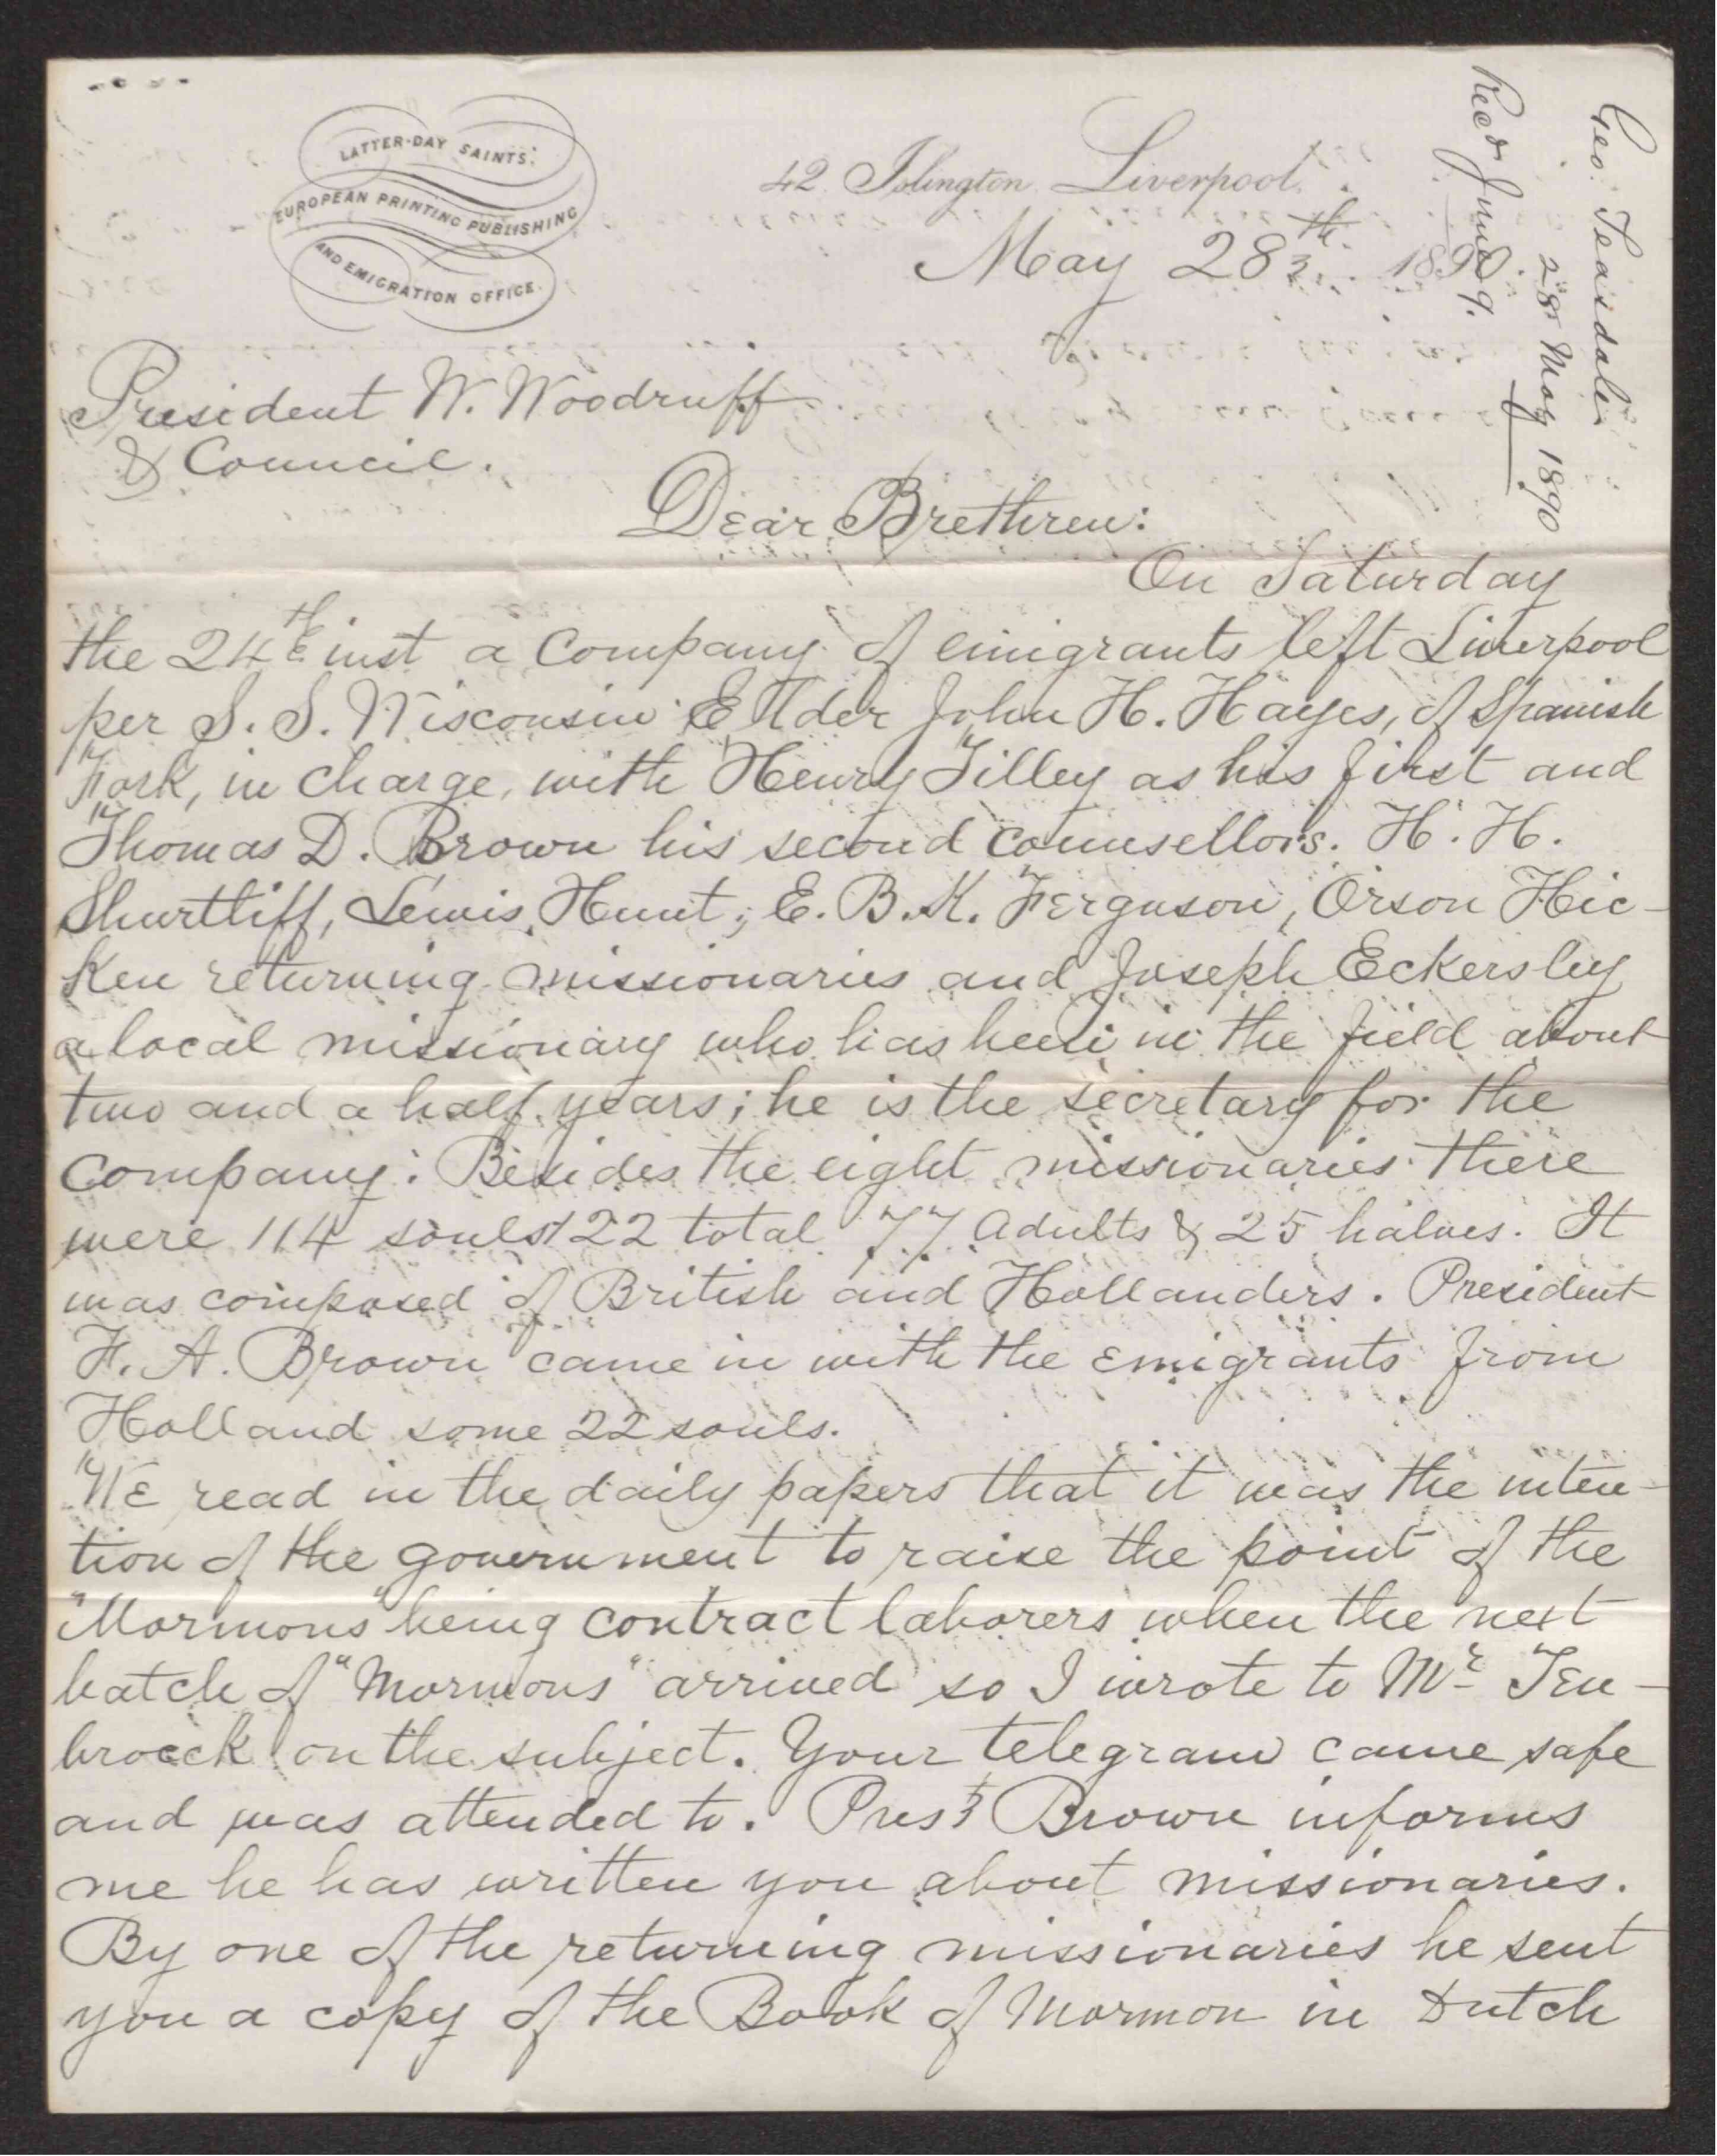 LATTER-DAY SAINTS'
EUROPEAN PRINTING PUBLISHING
AND EMIGRATION OFFICE.
42 Islington Liverpool.
May 28th. 1890.
Geo. Teasdale
28 May 1890
Recd June 9.
President W. Woodruff
& Council.
Dear Brethren:
On Saturday
the 24th inst a Company of emigrants left Liverpool
per S. S. Wisconsin Elder John H. Hayes, of Spanish
Fork, in charge, with Henry Tilley as his first and
Thomas D. Brown his second counsellors. H. H.
Shurtliff, Lewis Hunt; E. B. K. Ferguson, Orson Hic-
ken returning missionaries and Joseph Eckersley
a local missionary who has been in the field about
two and a half years; he is the secretary for the
company: Besides the eight missionaries there
were 114 souls 122 total 77 adults & 25 halves. It
was composed of British and Hollanders. President
F. A. Brown came in with the emigrants from
Holland some 22 souls.
We read in the daily papers that it was the inten-
tion of the government to raise the point of the
"Mormons" being contract laborers when the next
batch of "Mormons" arrived so I wrote to Mr Ten-
broeck on the subject. Your telegram came safe
and was attended to. Prest Brown informs
me he has written you about missionaries.
By one of the returning missionaries he sent
you a copy of the Book of Mormon in Dutch